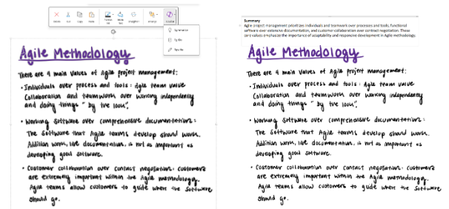 Agile Methodology
There are 4 main values of Agile project management:
• Individuals over process and tools: Agile team value
Collaboration and teamwork over working independently
and doing things "by the book".
• Working Software over comprehensive documentation:
The software that Agile teams develop should work.
Addition work, like documentation, is not as important as
developing good software.
• Customer collaboration over contact negotiation: customers
are extremely important within the Agile methodology.
Agile teams allow customers to guide when the software
should go.
Summary
Agile project management prioritizes individuals and teamwork over processes and tools, functional
software over extensive documentation, and customer collaboration over contract negotiation. These
core values emphasize the importance of adaptability and responsive development in Agile methodology.
Agile Methodology
There are 4 main values of Agile project management:
• Individuals over process and tools: Agile team value
Collaboration and teamwork over working independently
and doing things "by the book".
• Working Software over comprehensive documentation:
The software that Agile teams develop should work.
Addition work, like documentation, is not as important as
developing good software.
• Customer collaboration over contact negotiation: customers
are extremely important within the Agile methodology.
Agile teams allow customers to guide when the software
should go.